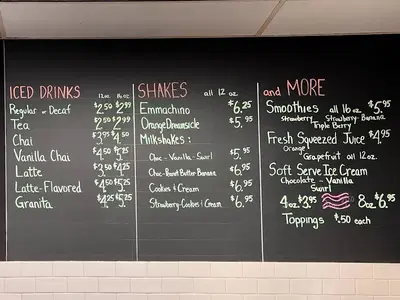 ICED DRINKS 12 oz. 16 oz.
Regular or Decaf $2.50 $2.99
Tea $2.50 $2.99
Chai $3.95 $4.50
Vanilla Chai $4.50 $5.25
Latte $3.50 $4.25
Latte-Flavored $4.50 $5.25
Granita $4.25 $5.25
SHAKES all 12 oz.
Emmachino $6.25
Orange Dreamsicle $5.95
Milkshakes:
Choc - Vanilla - Swirl $5.95
Choc-Peanut Butter-Banana $6.95
Cookies & Cream $6.95
Strawberry-Cookies & Cream $6.95
and MORE
Smoothies all 16 oz $5.95
Strawberry Strawberry-Banana
Triple Berry
Fresh Squeezed Juice $4.95
Orange
Grapefruit all 12 oz.
Soft Serve Ice Cream
Chocolate - Vanilla
Swirl
4oz $3.95 8oz $6.95
Toppings $.50 each